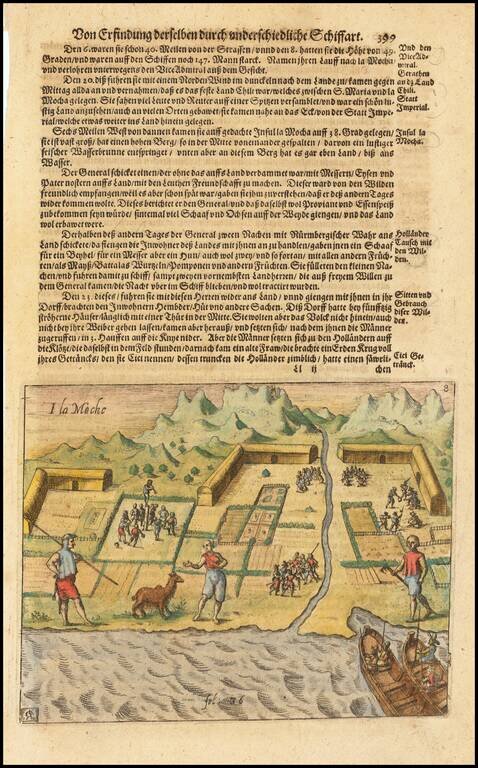 Von Erfindung derselben durch vnderschiedliche Schiffart. 399
Den 6. waren sie schon 40. Meilen von der Strassen / vnnd den 8. hatten sie die Höht von 49.
Graden / vnd waren auff den Schiffen noch 147. Mann starck. Namen jhren Lauff nach la Mocha
vnd verlohren vnterwegens den Vice Admiral auß dem Gesicht.
Vnd den
Vice Ad-
miral.
Den 20. diß fuhren sie mit einem Norden Wind im dunckeln nach dem Lande zu / kamen gegen
Mittag allda an vnd vernahmen / daß es das feste Land Chili war / welches zwischen S. Maria vnd la
Mocha gelegen. Sie sahen viel Leute vnd Reuter auff einer Spitzen versamblet / vnd war ein schön lu-
stig Land anzusehen / auch an vielen Orten gebawet sie kamen nahe an das Eck / von der Statt Impe-
rial / welche etwas weiter ins Land hinein gelegen.
Gerathen
an dz Land
Chili.
Statt
Imperial.
Sechs Meilen West von dannen kamen sie auff gedachte Insul la Mocha auff 38. Grad gelegen /
sie ist vast groß / hat einen hohen Berg / so in der Mitte von einander gespalten / darvon ein lustiger
frischer Wasserbrunne entspringet / vnten aber an diesem Berg hat es gar eben Land / biß ans
Wasser.
Insul la
Mocha.
Der General schicket einen / der ohne das auffs Land verdammet war / mit Messern / Eysen vnd
Pater nostern auffs Land / mit den Leuthen Freundschafft zu machen. Dieser ward von den Wilden
freundlich empfangen / weil es aber schon spät war / gaben sie jhm zuverstehen / daß er deß andern Tages
wider kommen wolte. Dieses berichtet er den General / vnd daß daselbst wol Proviant vnd Essenspeiß
zubekommen seyn würde / sintemal viel Schaaf vnd Ochsen auff der Weyde giengen / vnd das Land
wol erbawet were.
Derhalben deß andern Tages der General zween Nachen mit Nürmbergischer Wahr ans
Land schickete / da fiengen die Inwohner deß Landes mit jhnen an zu handlen / gaben jnen ein Schaaf
für ein Beyhel / für ein Messer aber ein Hun / auch wol zwey / vnd so fortan / mit allen andern Früch-
ten / als Mayß / Battatas Wurtzeln / Pomponen vnd andern Früchten. Sie fülleten den kleinen Na-
chen / vnd fuhren damit zu schiff / sampt zweyen vornembsten Landherren / die auß freyem Willen zu
dem General kamen / die Nacht vber im Schiff blieben / vnd wol tractirt wurden.
Holländer
Tausch mit
den Wil-
den.
Den 23. dieses / fuhren sie mit diesen Herren wider ans Land / vnnd giengen mit jhnen in jhr
Dorff / brachten den Innwohnern Hembder / Hüt vnd andere Sachen. Diß Dorff hatte bey fünfftzig
ströherne Häuser / länglich mit einer Thür in der Mitte. Sie wolten aber das Volck nicht hinein / auch
nicht bey jhre Weiber gehen lassen / kamen aber herauß / vnd setzten sich / nach dem jhnen die Männer
zugeruffen / in 3. Hauffen auff die Knye nider. Aber die Männer setzten sich zu den Holländern auff
die Klötze / die daselbst in dem Feld stunden / darnach kam ein alte Fraw / die brachte ein Erden Krug voll
jhres Geträncks / den sie Ciel nennen / dessen truncken die Holländer zimblich / hatte einen säwrli-
Sitten vnd
Gebrauch
diser Wil-
den.
Ciel Ge-
tränck.
Ll ij
chen
8
I la Moche
fol. 86